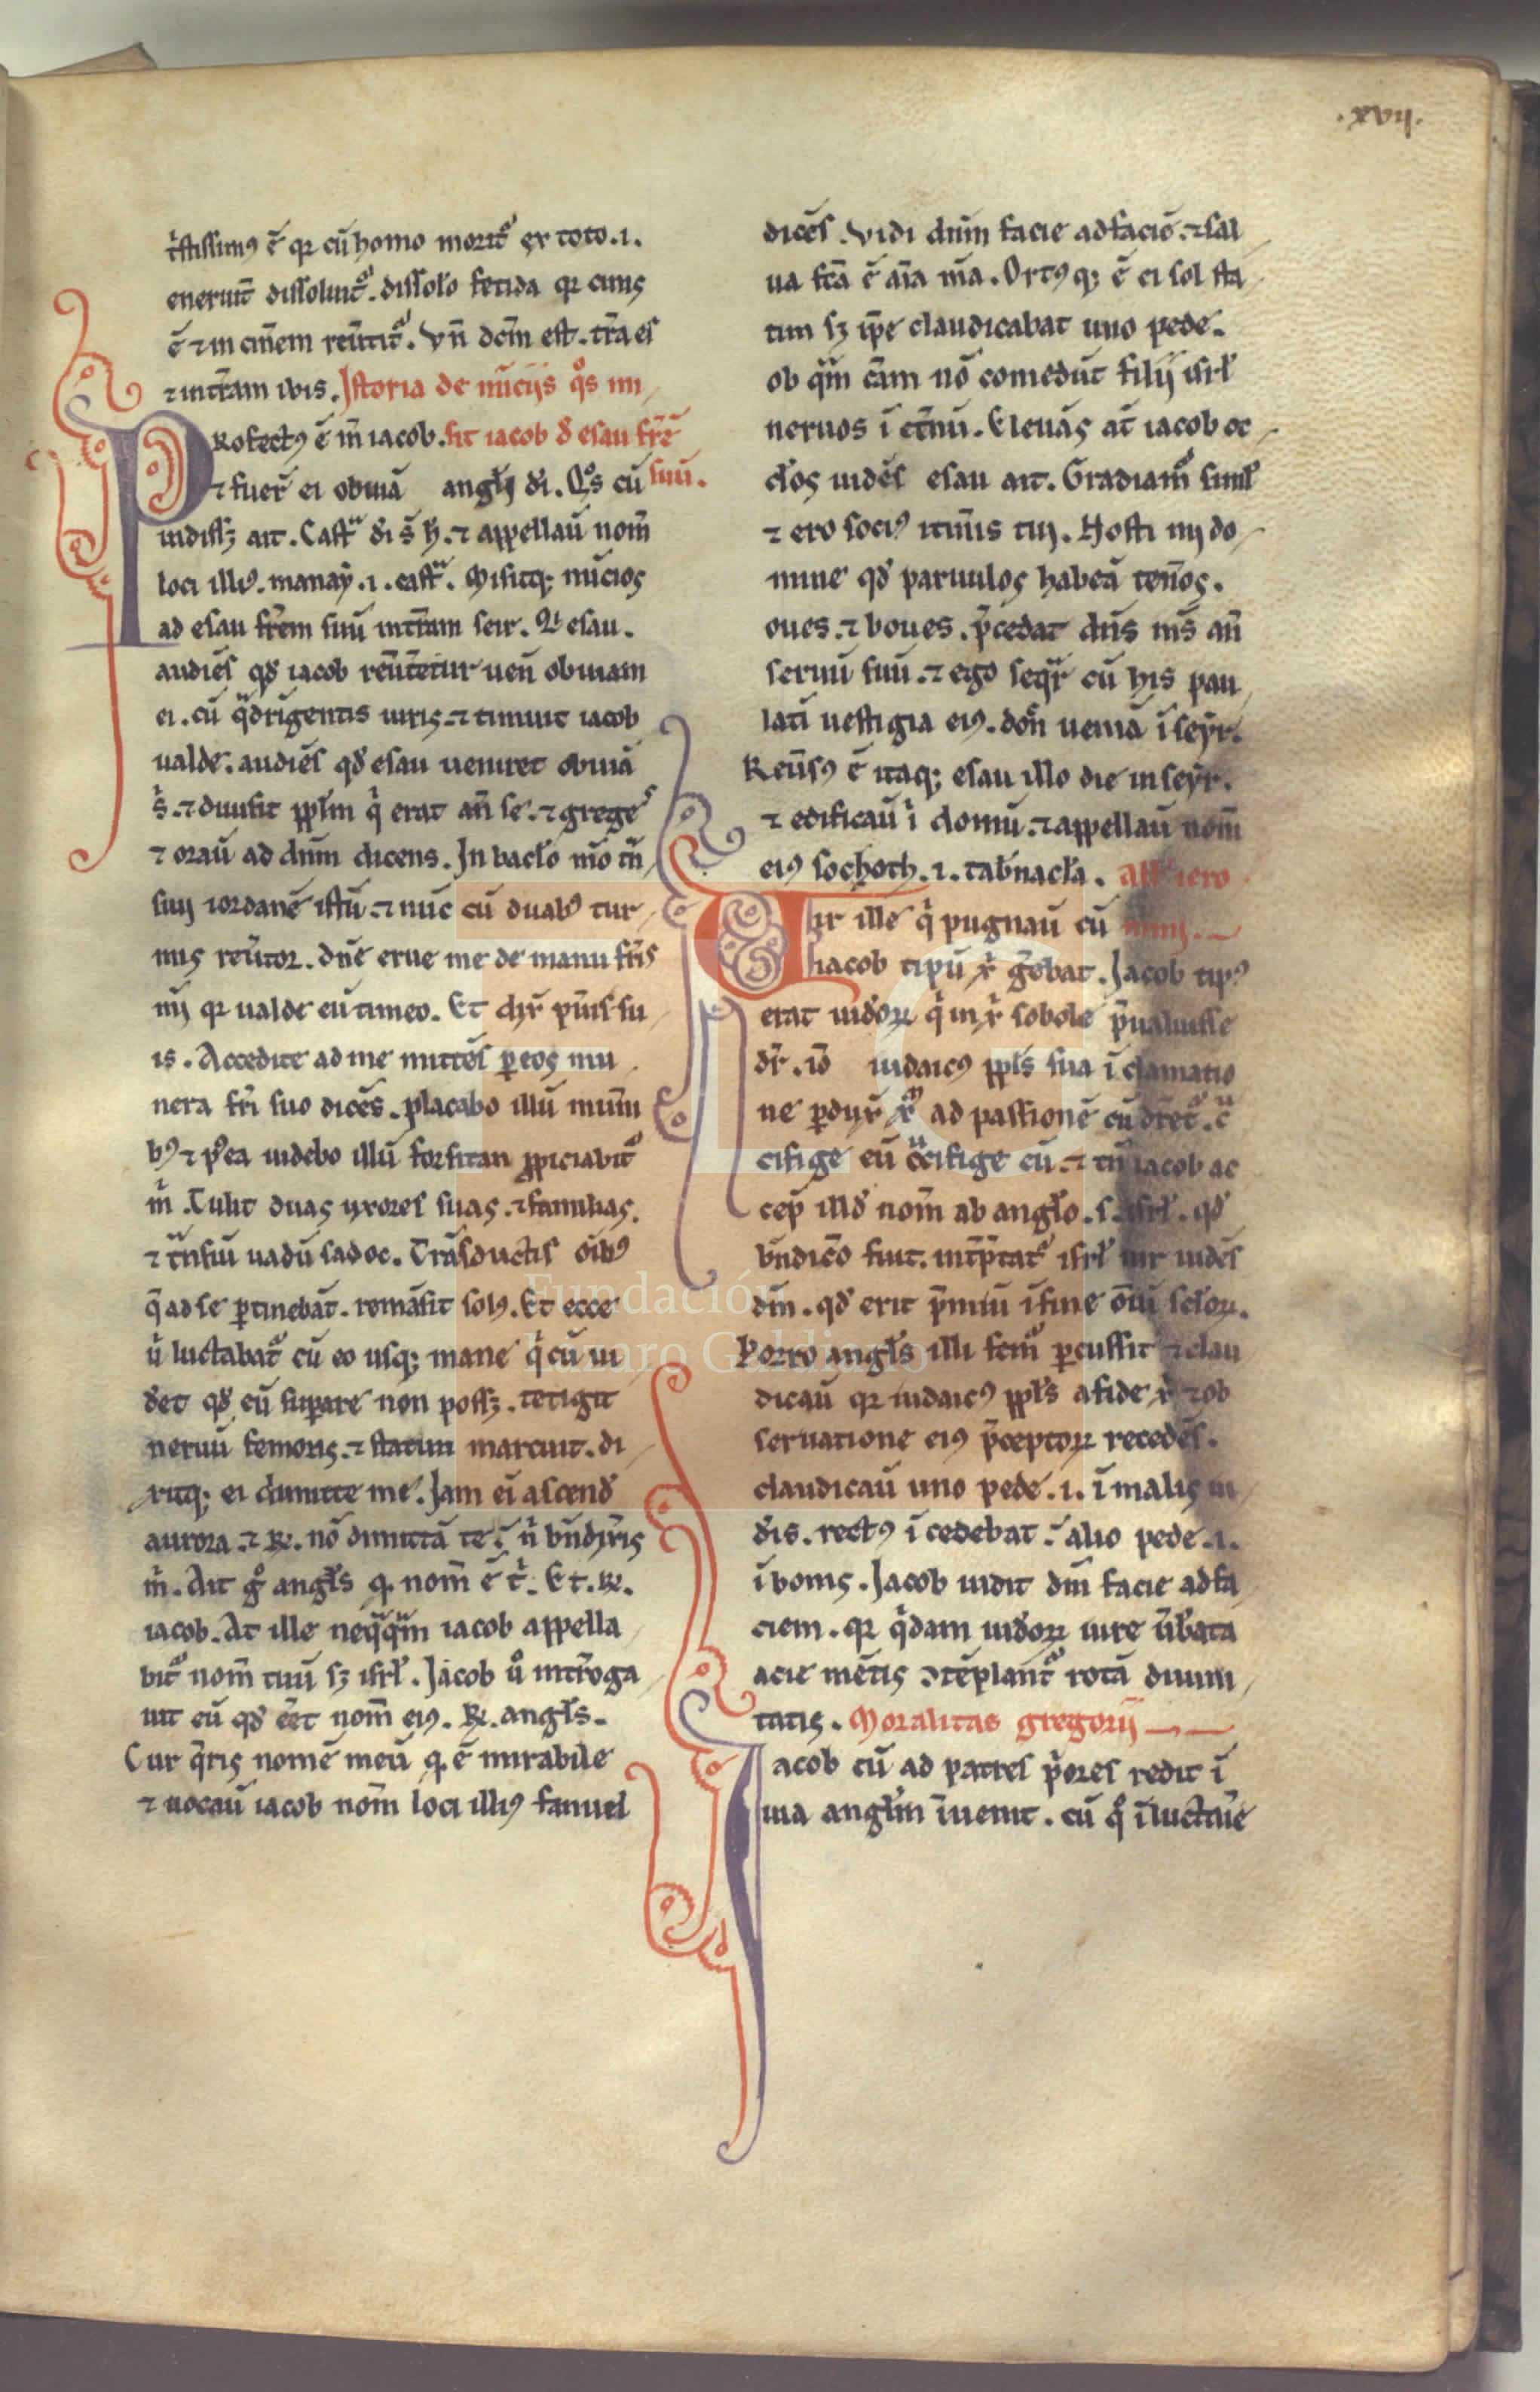 .xvij.
t᷑stissimꝯ ē qꝛ cū homo morit᷑ ex toto .i.
eneruit᷑ dissoluit᷑. dissolo fetida qꝛ cinis
ē ⁊ in cīnem reūtit᷑. Vn̄ dcm̄ est. tr̄a es
⁊ in tr̄am ibis. Istoria de nūciis qͦs mi
Rofectꝯ ē īn iacob. sit iacob d̄ esau frē
⁊ fuer̄ ei obuiā angl̄i di. Qͦs cū suū.
uidissꝫ ait. Castᵃ di ſ̄ h̄. ⁊ appellau̅ nom̄
loci illiꝯ. manaȳ .i. castᵃ. Misitqꝫ nūcios
ad esau frēm suū in tr̄am seir. Qͥ esau.
audiēs qd̄ iacob reūtetur uen̄ obuiam
ei. cū qᵃdrigentis uiris. ⁊ timuit iacob
ualde. audiēs qd̄ esau ueniret obuiā
sͥ. ⁊ diuisit ppl̄m qͥ erat an̄ se. ⁊ greges
⁊ orau̅ ad dn̄m dicens. In baclo mͦo tn̄
siuj iordanē istū. ⁊ nūc cū duabꝯ tur
mis reūtor. dn̄e erue me de manu fr̄is
mj qꝛ ualde eū timeo. Et dix̄ pᵘis su
is. Accedite ad me mittēs ꝑ eos mu
nera fr̄i suo dicēs. placabo illū mun̄i
bꝯ ⁊ pᵒea uidebo illū forsitan ꝓpiciabit᷑
mͥ. Tulit duas uxores suas. ⁊ familias.
⁊ tᵃnsiu̅ uadū iadoc. Trāsductis oībꝯ
q̄ ad se ꝑtinebāt. romāsit solꝯ. Et ecce
uͥ luctabat᷑ cū eo usqꝫ mane qͥ cū ui
det qd̄ eū suꝑare non possꝫ. tetigit
neruū femoris. ⁊ statim marcuit. di
xitqꝫ ei dimitte me. Iam eī ascend̄
aurora. ⁊ R̄. nō dimittā te ī nͥ bn̄dix̄is
mͥ. Ait gͦ angl̄s q. nom̄ ē tͥ. Et. R̄.
iacob. At ille neqᵃqᵃm iacob appella
bit᷑ nom̄ tuū sꝫ isrl̄. Iacob uͦ int̄roga
uit eū qd̄ eēt nom̄ eiꝯ. R̄. angl̄s.
Cur q̄ris nomē meū q. ē mirabile
⁊ uocau̅ iacob nom̄ loci illiꝯ fanuel
dicēs. Vidi dn̄m facie ad faciē. ⁊ sal
ua fcā ē aīa mā. Ortꝯ qꝫ ē ei sol sta
tim sꝫ ip̄e claudicabat uno pede.
ob qᵃm cām nō comedūt filij isrl̄
neruos ī etn̄ū. Eleuās at̄ iacob oc
cl̄os uidēs esau ait. Gradiam᷑ siml̄
⁊ ero sociꝯ itin̄is tuj. Nosti mj do
mine qd̄ paruulos habeā ten̄os.
oues. ⁊ boues. p̄cedat dn̄s ms̄ an̄
seruū suū. ⁊ ego seqᵃr cū his pau
lati̅ uestigia eiꝯ. don̄ ueniā ī seȳr.
Reūsꝯ ē itaqꝫ esau illo die in seȳr.
⁊ edificau̅ iͥ domū. ⁊ appellau̅ nom̄
eiꝯ sochoth .i. tab̄nacl̄a. All' iero
ir ille qͥ pugnau̅ cū nimj.
iacob tipū xͥ ḡebat. Iacob tipꝯ
erat iud̄oꝝ qͥ in xͥ sobole p̄ualuisse
dr̄. iō iudaicꝯ ppl̄s sua ī clamatio
ne ꝑdux̄ xᵐ ad passionē cū dr̄et᷑. cᵘ
cifige eū cᵘcifige eū. ⁊ tn̄ iacob ac
cep̄ illd̄ nom̄ ab angl̄o. s. isrl̄. qd̄
bn̄dico̅ fuit. int̄p̄tat᷑ isrl̄ uir uidēs
dm̄. qd̄ erit p̄miū ī fine oīū scl̄oꝝ.
Porro angl̄s illi fem᷑ ꝑcussit ⁊ clau
dicau̅ qꝛ iudaicꝯ ppl̄s a fide xͥ ⁊ ob
seruatione eiꝯ p̄ceptoꝝ recedēs.
claudicau̅ uno pede .i. ī malis in
d̄is. rectꝯ ī cedebat ī alio pede .i.
ī bonis. Iacob uidit dm̄ facie ad fa
ciem. qꝛ qͥdam iud̄oꝝ iure ūb̄ata
acie mētis ↄtēplant᷑ rotā diuini
tatis. Moralitas gregorij
acob cū ad patres pͥores redit ī
uia angl̄m īuenit. cū qͦ ī luctam̄e
Fundación
Lázaro Galdiano